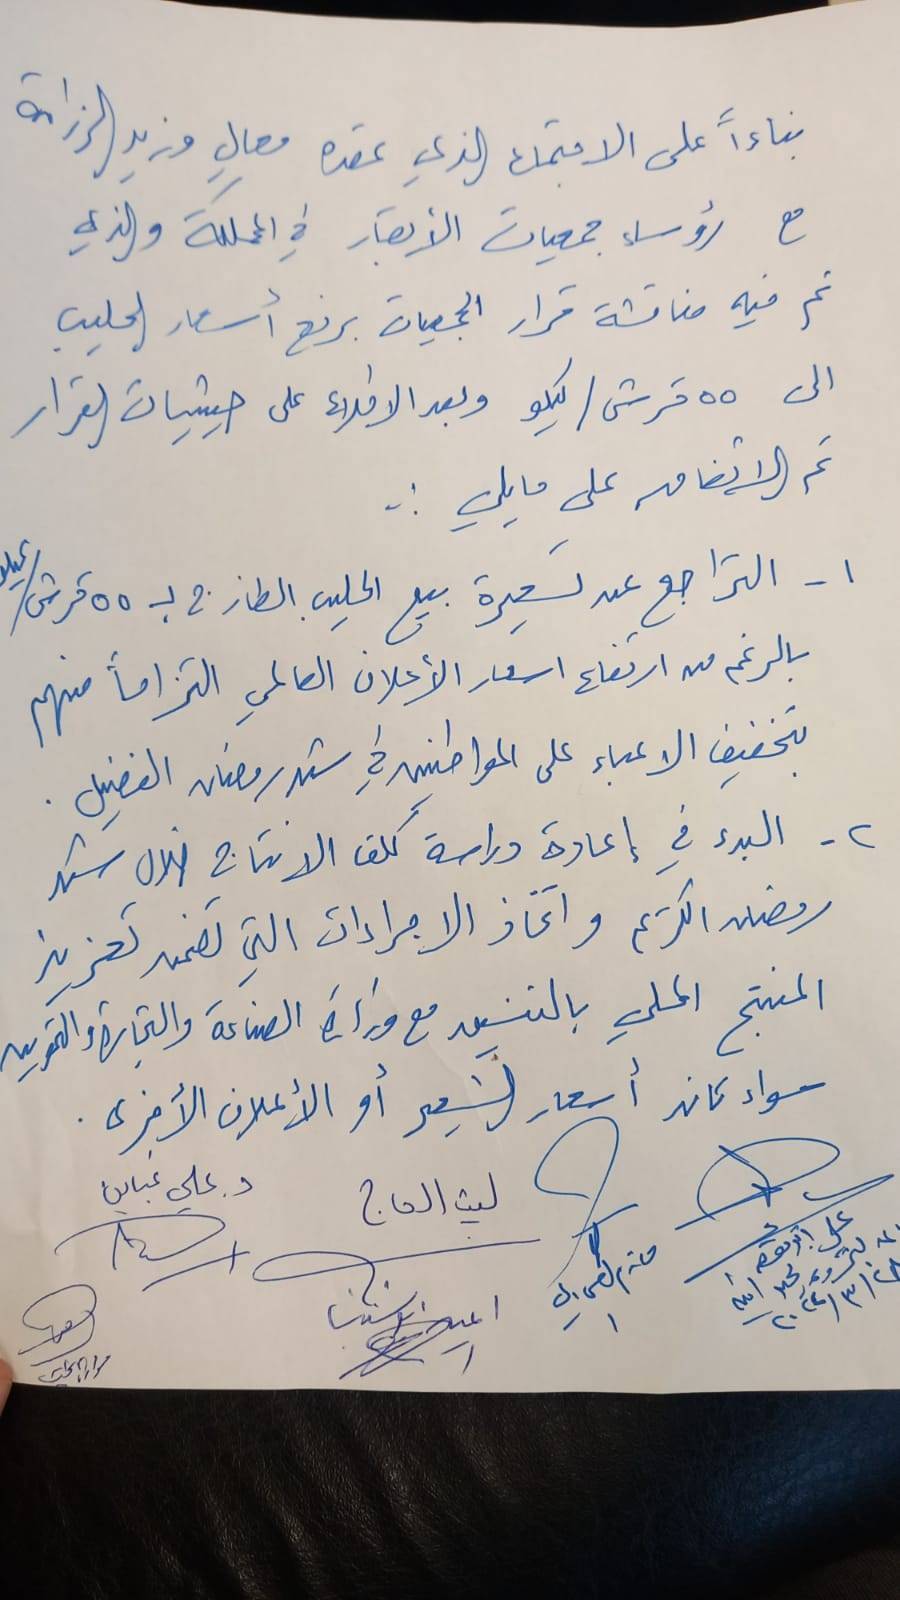 بناءاً على الاجتماع الذي عقده معالي وزير الزراعة
مع رؤساء جمعيات الأبقار في المملكة والذي
تم فيه مناقشة قرار الجمعيات برفع أسعار الحليب
الى ٥٥ قرش/كيلو وبعد الاطلاع على حيثيات القرار
تم الاتفاق على مايلي :-
١- التراجع عن تسعيرة بيع الحليب الطازج بـ ٥٥ قرش/كيلو
بالرغم من ارتفاع اسعار الأعلاف العالمي التزاماً منهم
بتخفيف الاعباء على المواطنين في شهر رمضان الفضيل .
٢- البدء في إعادة دراسة كلف الانتاج خلال شهر
رمضان الكريم واتخاذ الاجراءات التي تضمن تعزيز
المنتج المحلي بالتنسيق مع وزارة الصناعة والتجارة والتموين
سواء كانت أسعار الشعير أو الأعلاف الأخرى .
د. علي غباين
ليث الحاج
علي